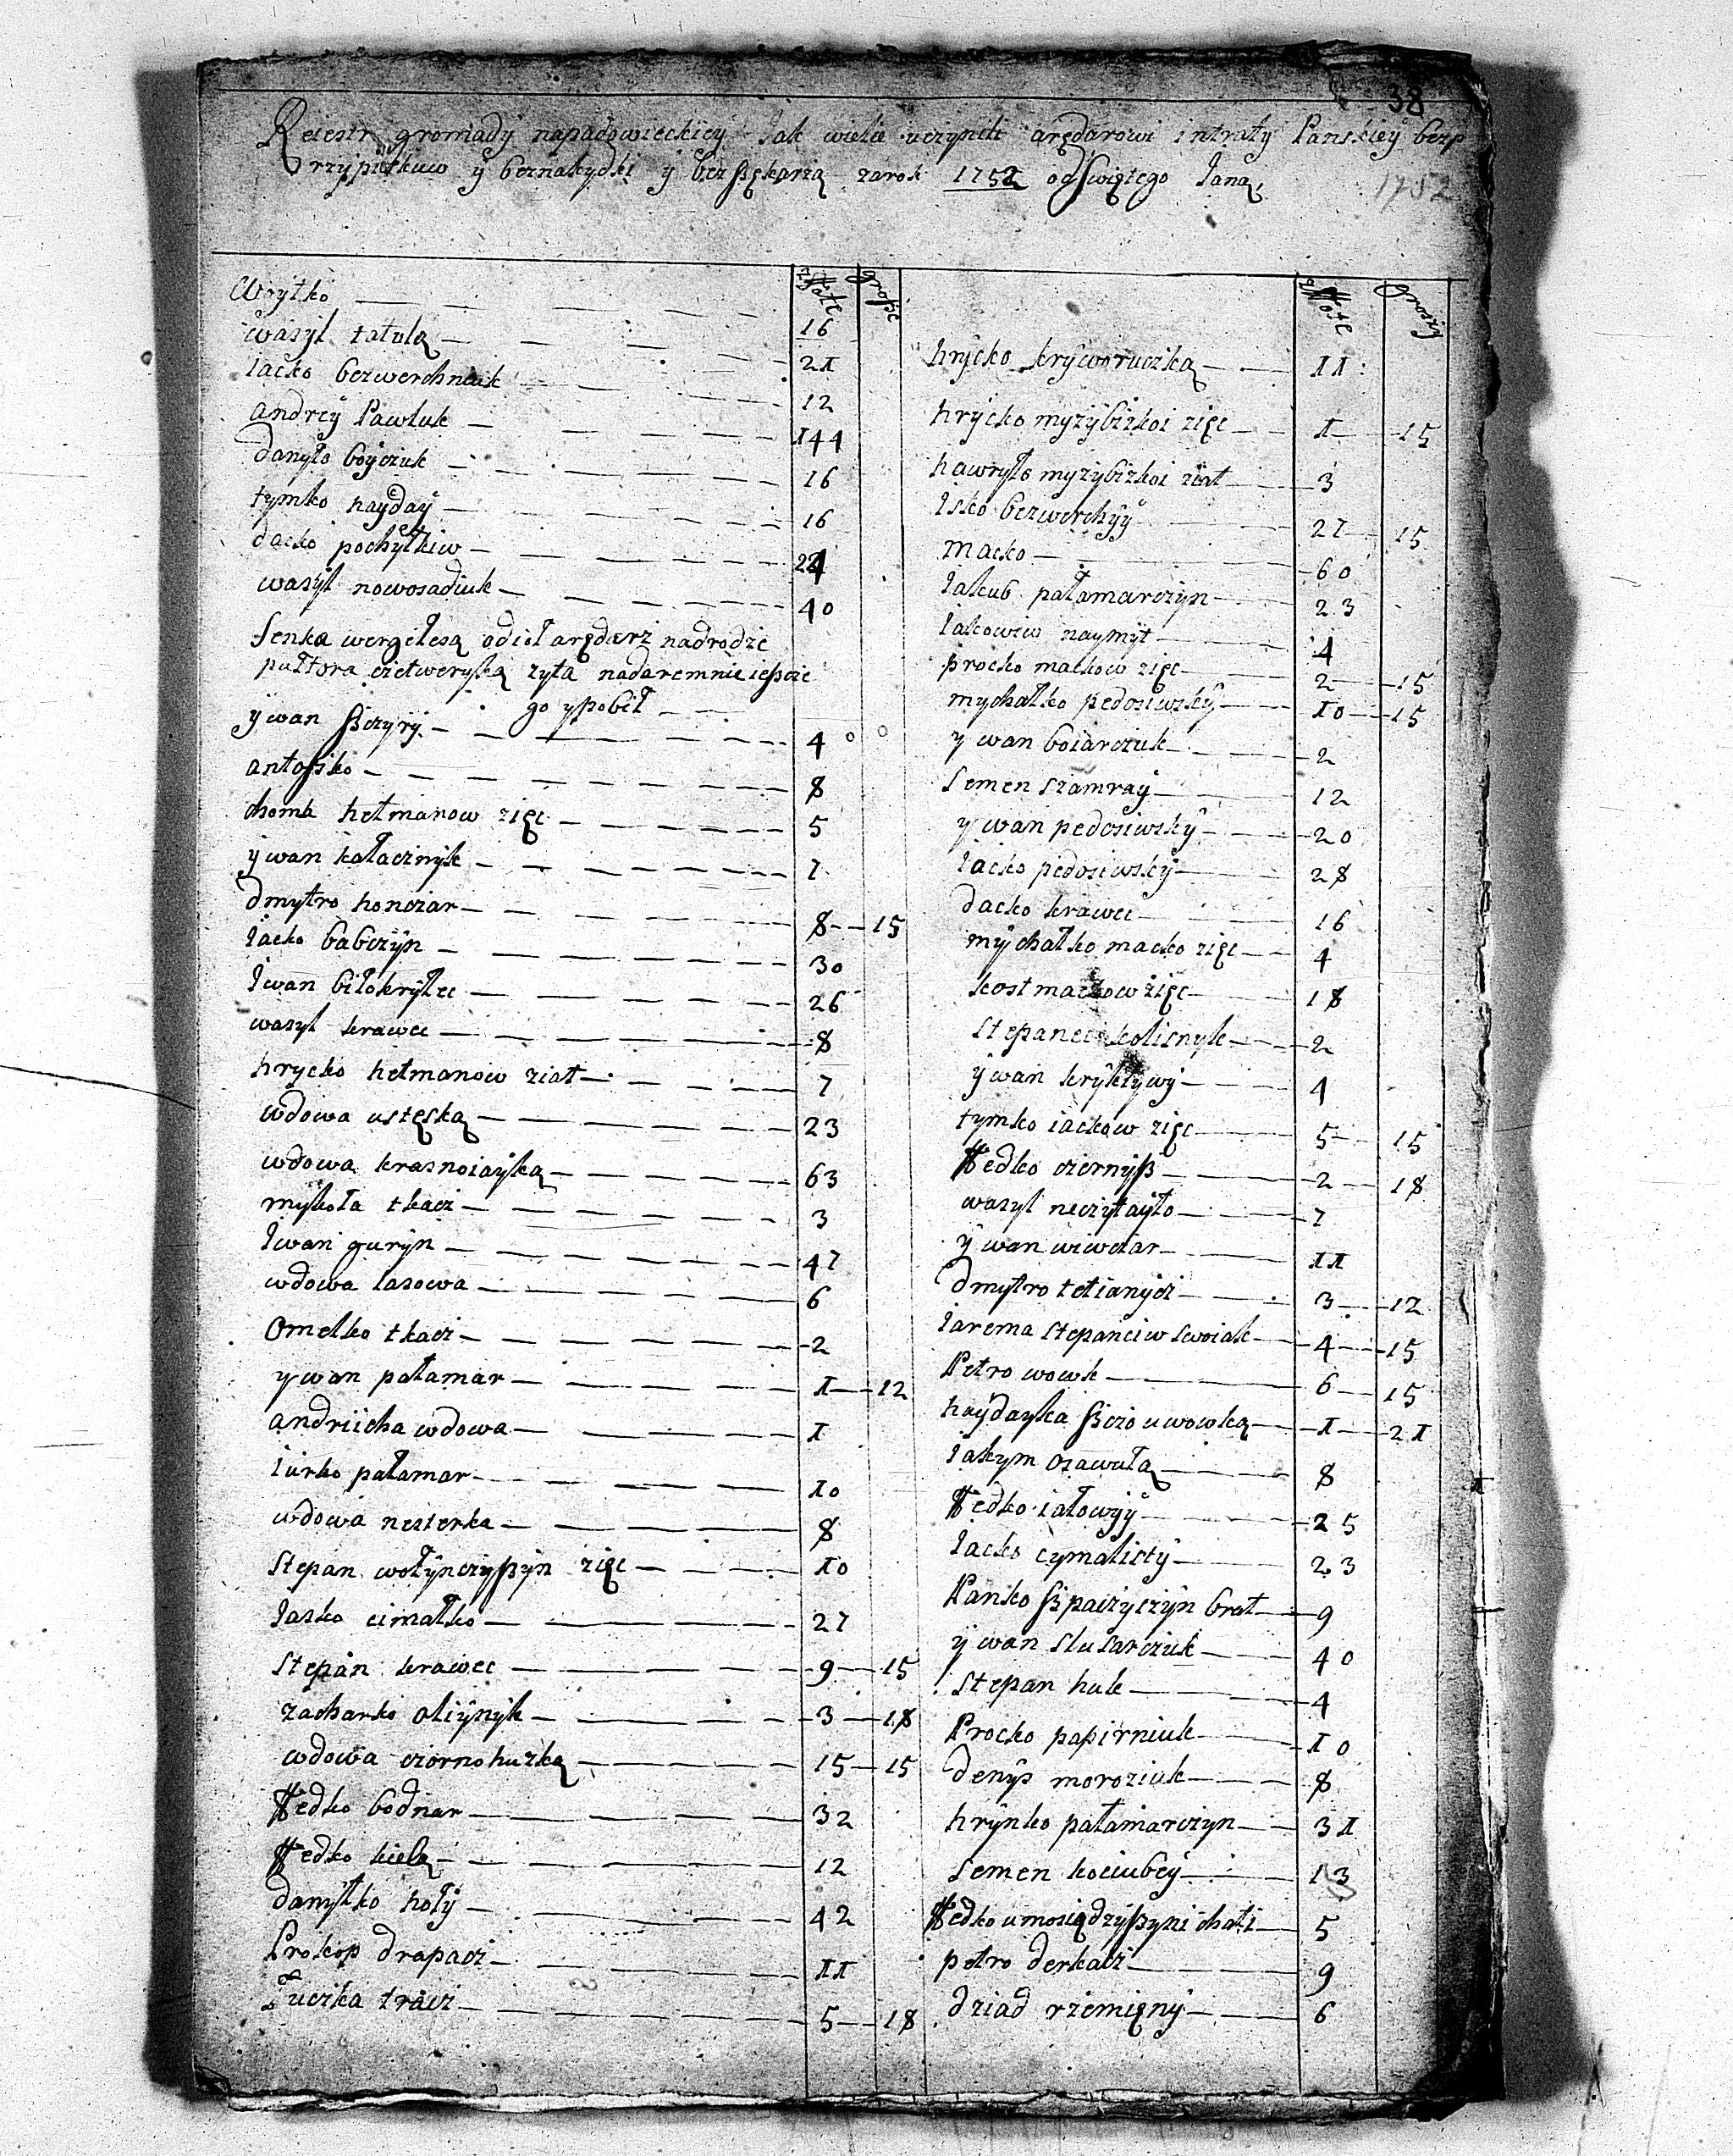 38
Reiestr gromady napadowieckiey Jak wiele uczynili arędarowi intraty Panskiey bezp
rzypustkuw y beznakydki y bez ßękarza zarok 1752 od Swiętego Jana,
1752
złote grosze
Wytko 16
wasyl tatula 21
Jacko bezwerchniuk 12
andrey Pawluk 144
danyło boyczuk 16
tymko hayday 16
dacko pochyłkiw 24
wasyl nowosadiuk 40
Senka wergelesa odioł arędarz nadrodze
pułtora czetweryka zyta nadaremnie ieszcze
go y pobił
ywan ßczyry 4
antośko 8
choma hetmanow zięc 5
ywan kałacznyk 7
dmytro honczar 8 15
Jacko babczyn 30
Iwan biłokrylec 26
wasyl krawec 8
hrycko hetmanow ziat 7
wdowa ustęska 23
wdowa krasnoiayka 63
mykoła tkacz 3
Iwan guryn 47
wdowa lasowa 6
Omelko tkacz 2
ywan pałamar 1 12
andriicha wdowa 1
iurko pałamar 10
wdowa nesterka 8
Stepan wołynczyßyn zięc 10
Jasko cimałko 27
Stepan krawec 9 15
zacharko oliynyk 3 18
wdowa czornohuzka 15 15
ffedko bodnar 32
ffedko kiela 12
danyłko hoły 42
Prokop drapacz 11
Łuczka tracz 5 18
złote groszy
hrycko kryworuczka 11
hrycko myzybizkoi zięc 1 15
hawryło myzybizkoi ziat 3
Isko bezwerchyy 27 15
Macko 60
Jakub pałamarczyn 23
Jakowiw naymyt 4
procko mackow zięc 2 15
mychałko pedosiwsky 10 15
ywan boiarczuk 2
Semen szamray 12
ywan pedosiwsky 20
Jacko pedosiwsky 28
dacko krawec 16
mychałko macko zięc 4
kost mackow zięc 18
Stepanec kolisnyk 2
ywan kryklywy 4
tymko iackow zięc 5 15
ffedko czernyß 2 18
wasyl neczytayło 7
ywan wiwczar 11
dmytro tetianycz 3 12
Jarema stepanciw swoiak 4 15
Petro wowk 6 15
haydayka ßczo u wowka 1 21
Jakym osawuła 8
ffedko iałowyy 25
Jacko cymalisty 23
Panko ßpaczyczyn brat 9
ywan slusarczuk 40
Stepan huk 4
Procko papirniuk 10
denys moroziuk 8
hrynko pałamarczyn 31
Semen kociubey 13
ffedko u mosiądzyßyni chati 5
petro derkacz 9
dziad rzemięny 6